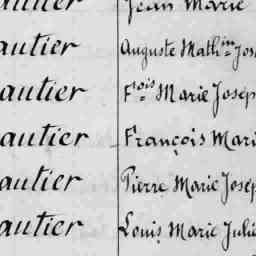 autier Jean Marie
autier Auguste Mathin Jos
autier Fois Marie Josep
autier François Mari
autier Pierre Marie Josep
autier Louis Marie Julie